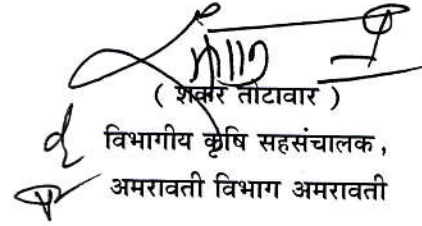 ( शंकर तोटावार )
विभागीय कृषि सहसंचालक,
अमरावती विभाग अमरावती